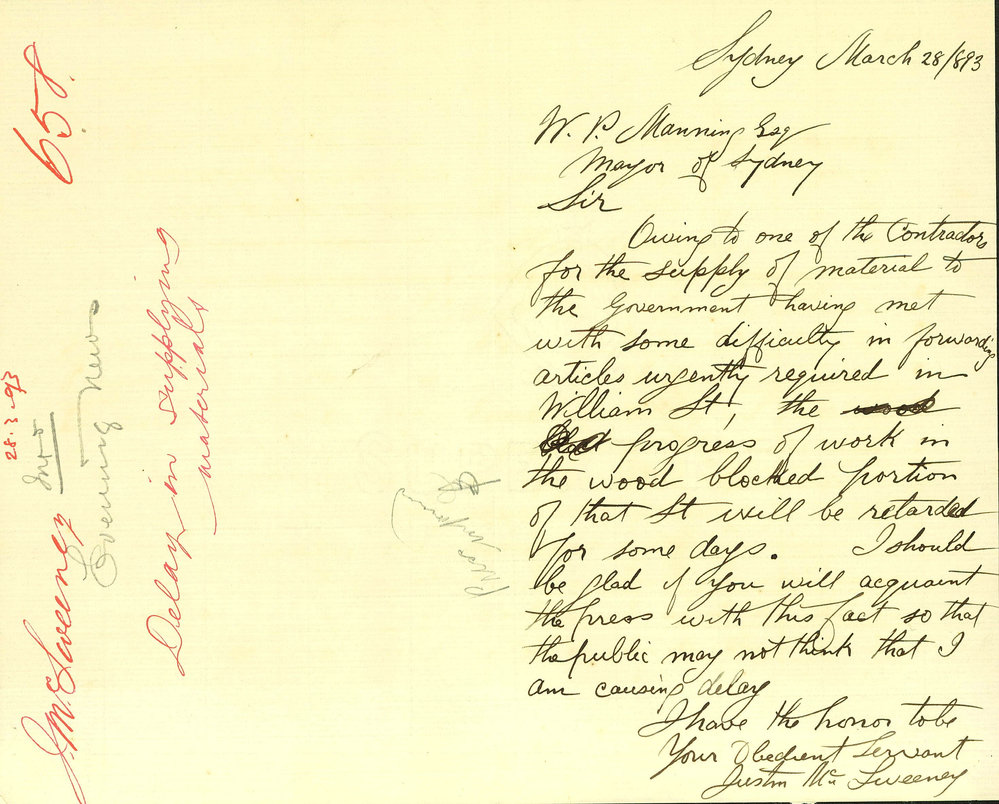 Sydney March 28/893
W. P. Manning Esq
Mayor of Sydney
Sir
Owing to one of the Contractors
for the supply of material to
the Government having met
with some difficulty in forwarding
articles urgently required in
William St, the wood
progress of work in
the wood blocked portion
of that St will be retarded
for some days. I should
be glad if you will acquaint
the press with this fact so that
the public may not think that I
am causing delay
I have the honor to be
Your Obedient Servant
Justin Mc Sweeney
658.
28.3.93
J. McSweeney
Evening News
Delay in supplying
materials